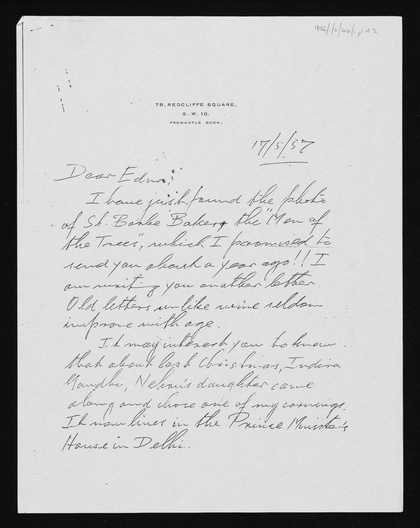 78, REDCLIFFE SQUARE,
S. W. 10.
FREMANTLE
17/5/57
Dear Edna,
I have just found the photo
of St. Barbe Baker, the "Men of
the Trees", which I promised to
send you about a year ago!! I
am writing you another letter
Old letters unlike wine seldom
improve with age.
It may interest you to know
that about last Christmas, Indira
Gandhi, Nehru's daughter came
along and chose one of my carvings.
It now lives in the Prime Minister's
House in Delhi.